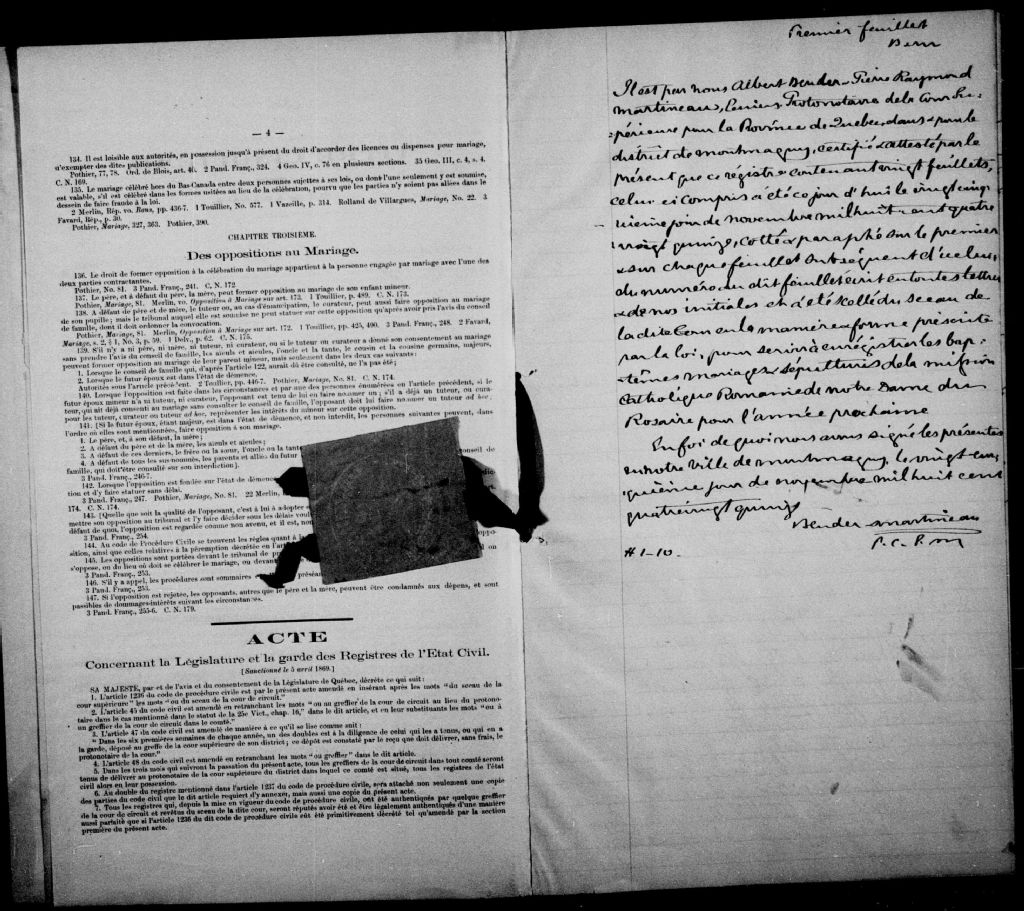 — 4 —
134. Il est loisible aux autorités, en possession jusqu'à présent du droit d'accorder des licences ou dispenses pour mariage,
d'exempter des dites publications.
Pothier, 77, 78. Ord. de Blois, art. 40. 2 Pand. Franç., 324. 4 Geo. IV, c. 76 en plusieurs sections. 35 Geo. III, c. 4, s. 4.
C. N. 169.
135. Le mariage célébré hors du Bas-Canada entre deux personnes sujettes à ses lois, ou dont l'une seulement y est soumise,
est valable, s'il est célébré dans les formes usitées au lieu de la célébration, pourvu que les parties n'y soient pas allées dans le
dessein de faire fraude à la loi.
2 Merlin, Rép. vo. Bans, pp. 436-7. 1 Touillier, No. 577. 1 Vazeille, p. 314. Rolland de Villargues, Mariage, No. 22. 3
Favard, Rép., p. 30.
Pothier, Mariage, 327, 363. Pothier, 390.
CHAPITRE TROISIÈME.
Des oppositions au Mariage.
136. Le droit de former opposition à la célébration du mariage appartient à la personne engagée par mariage avec l'une des
deux parties contractantes.
Pothier, No. 81. 3 Pand. Franç., 241. C. N. 172
137. Le père, et à défaut du père, la mère, peut former opposition au mariage de son enfant mineur.
Pothier, Mariage, 81. Merlin, vo. Opposition à Mariage sur art. 173. 1 Touillier, p. 489. C. N. 173.
138. A défaut de père et de mère, le tuteur ou, au cas d'émancipation, le curateur, peut aussi faire opposition au mariage
de son pupille; mais le tribunal auquel elle est soumise ne peut statuer sur cette opposition qu'après avoir pris l'avis du conseil
de famille, dont il doit ordonner la convocation.
Pothier, Mariage, 81. Merlin, Opposition à Mariage sur art. 172. 1 Touillier, pp. 425, 490. 3 Pand. Franç., 248. 2 Favard,
Mariage, s. 2, § 1, No. 3, p. 59. 1 Delv., p. 62. C. N. 175.
139. S'il n'y a ni père, ni mère, ni tuteur, ni curateur, ou si le tuteur ou curateur a donné son consentement au mariage
sans prendre l'avis du conseil de famille, les aïeuls et aïeules, l'oncle et la tante, le cousin et la cousine germains, majeurs,
peuvent former opposition au mariage de leur parent mineur, mais seulement dans les deux cas suivants:
1. Lorsque le conseil de famille qui, d'après l'article 122, aurait dû être consulté, ne l'a pas été;
2. Lorsque le futur époux est dans l'état de démence.
Autorités sous l'article précédent. 2 Touillier, pp. 446-7. Pothier, Mariage, No. 81. C. N. 174.
140. Lorsque l'opposition est faite dans les circonstances et par une des personnes énumérées en l'article précédent, si le
futur époux mineur n'a ni tuteur, ni curateur, l'opposant est tenu de lui en faire nommer un; s'il a déjà un tuteur, ou curateur,
qui ait déjà consenti au mariage sans consulter le conseil de famille, l'opposant doit lui faire nommer un tuteur ad hoc,
pour les tuteur, curateur ou tuteur ad hoc, représenter les intérêts du mineur sur cette opposition.
141. [Si le futur époux, étant majeur, est dans l'état de démence, et non interdit, les personnes suivantes peuvent, dans
l'ordre où elles sont mentionnées, faire opposition à son mariage.
1. Le père, et, à son défaut, la mère;
2. A défaut du père et de la mère, les aïeuls et aïeules;
3. A défaut de ces derniers, le frère ou la sœur, l'oncle ou la tante
4. A défaut de tous les sus-nommés, les parents et alliés du futur conseil de
famille, qui doit être consulté sur son interdiction].
3 Pand. Franç., 246-7.
142. Lorsque l'opposition est fondée sur l'état de démence
tion et d'y faire statuer sans délai.
3 Pand. Franç., 247. Pothier, Mariage, No. 81. 22 Merlin,
174. C. N. 174.
143. [Quelle que soit la qualité de l'opposant, c'est à lui à adopter
mettre son opposition au tribunal et l'y faire décider sous les délais
défaut de quoi, l'opposition est regardée comme non avenue, et il est,
3 Pand. Franç., 254.
144. Au code de Procédure Civile se trouvent les règles quant à
sition, ainsi que celles relatives à la péremption décrétée en l'
145. Les oppositions sont portées devant le tribunal de
s'oppose, ou du lieu où doit se célébrer le mariage, ou devant
3 Pand. Franç., 253.
146. S'il y a appel, les procédures sont sommaires
3 Pand. Franç., 253.
147. Si l'opposition est rejetée, les opposants, autres que le père et la mère, peuvent être condamnés aux dépens, et sont
passibles de dommages-intérêts suivant les circonstances.
3 Pand. Franç., 255-6. C. N. 179.
ACTE
Concernant la Législature et la garde des Registres de l'Etat Civil.
[Sanctionné le 5 avril 1869.]
SA MAJESTÉ, par et de l'avis et du consentement de la Législature de Québec, décrète ce qui suit:
1. L'article 1236 du code de procédure civile est par le présent acte amendé en insérant après les mots "du sceau de la
cour supérieure" les mots "ou du sceau de la cour de circuit."
2. L'article 45 du code civil est amendé en retranchant les mots "ou au greffier de la cour de circuit au lieu du protono-
taire dans le cas mentionné dans le statut de la 25e Vict., chap. 16," dans le dit article, et en leur substituant les mots "ou à
un greffier de la cour de circuit dans le comté."
3. L'article 47 du code civil est amendé de manière à ce qu'il se lise comme suit:
"Dans les six premières semaines de chaque année, un des doubles est à la diligence de celui qui les a tenus, ou qui en a
la garde, déposé au greffe de la cour supérieure de son district; ce dépôt est constaté par le reçu que doit délivrer, sans frais, le
protonotaire de la cour."
4. L'article 48 du code civil est amendé en retranchant les mots "ou greffier" dans le dit article.
5. Dans les trois mois qui suivront la passation du présent acte, tous les greffiers de la cour de circuit dans tout comté seront
tenus de délivrer au protonotaire de la cour supérieure du district dans lequel ce comté est situé, tous les registres de l'état
civil alors en leur possession.
6. Au double du registre mentionné dans l'article 1237 du code de procédure civile, sera attaché non seulement une copie
des parties du code civil que le dit article requiert d'y annexer, mais aussi une copie du présent acte.
7. Tous les registres qui, depuis la mise en vigueur du code de procédure civile, ont été authentiqués par quelque greffier
de la cour de circuit et revêtus du sceau de la dite cour, seront réputés avoir été et être légalement authentiqués d'une manière
aussi parfaite que si l'article 1236 du dit code de procédure civile eût été primitivement décrété tel qu'amendé par la section
première du présent acte.
Premier feuillet
B & m
Il est par nous Albert Bender & Pierre Raymond
Martineau, Protonotaire de la Cour Su-
périeure pour la Province de Quebec, dans & pour le
district de Montmagny, certifié & attesté par le
présent que ce régistre contenant vingt feuillets,
celui ci compris a été ce jour d'hui le vingt cinq
uième jour de novembre mil huit cent quatre
vingt quinze, cotté & paraphé sur le premier
& sur chaque feuillet subséquent d'icelui,
du numéro du dit feuillet écrit en toutes lettres
& de nos initiales et a été scellé du sceau de
la dite Cour en la manière & forme présente
par la loi, pour servir à enrégistrer les bap-
têmes mariages & sépultures de la mission
Catholique Romaine de notre Dame du
Rosaire pour l'année prochaine
En foi de quoi nous avons signé les présentes
en notre ville de Montmagny, le vingt cin
quième jour de novembre mil huit cent
quatrevingt quinze
Bender & Martineau
P. C. S. M
# 1-10-